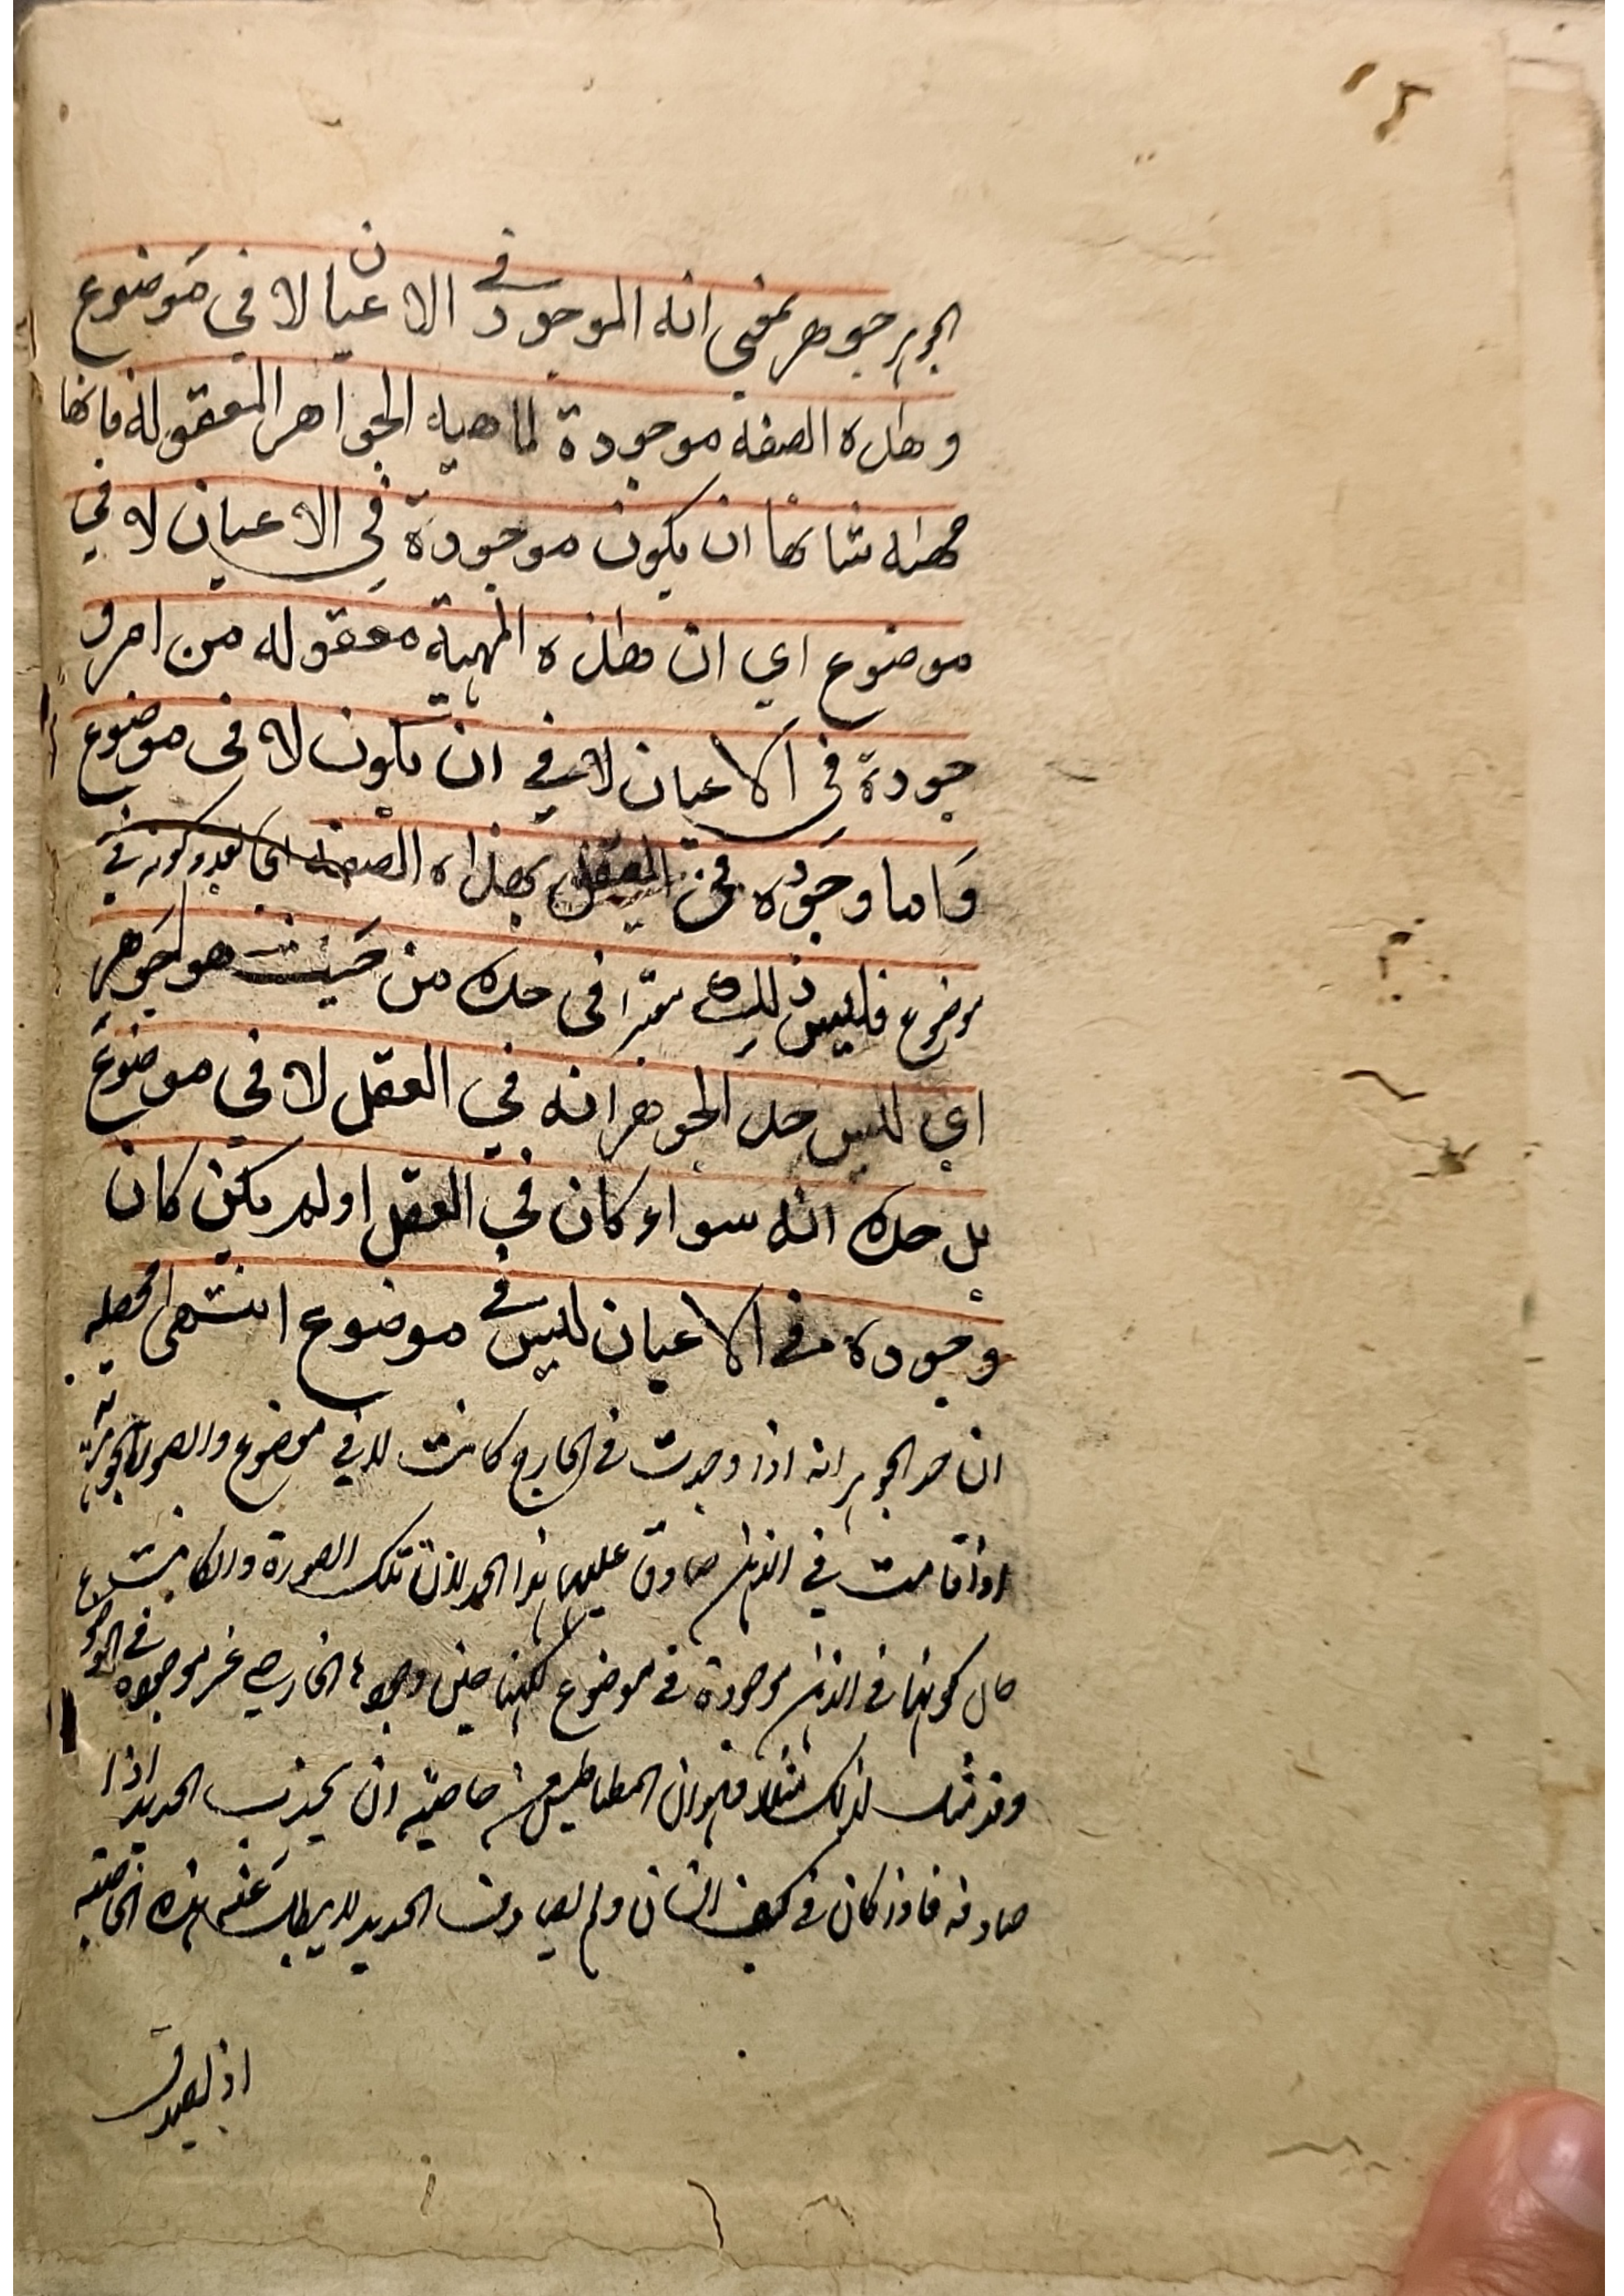 الجوهر جوهر بمعنى انه الموجود في الاعيان لا في موضوع
وهذه الصفة موجودة لماهية الجواهر المعقولة فانها
مهية شانها ان يكون موجودة في الاعيان لا في
موضوع اي ان هذه المهية معقوله من امر و
جودة في الاعيان لا في ان يكون لا في موضوع
واما وجوده في العقل بهذه الصفة
موضوع فليس ذلك في حده من حيث هو جوهر
اي ليس حد الجوهر انه في العقل لا في موضوع
بل حده انه سواء كان في العقل اولم يكن كان
وجوده في الاعيان ليس في موضوع انتهى محصله
ان حد الجوهر انه اذا وجدت في الخارج كانت لا في موضوع والصورة الجوهرية
اذا قامت في الذهن صادق عليها هذا الحد لان تلك الصورة وان كانت
حال كونها في الذهن موجودة في موضوع لكنها حين وجودها الخارجي غير موجودة في الموضوع
وقد مثل لذلك مثلا وهو ان المقناطيس خاصيته ان يجذب الحديد اذا
صادفه فاذا كان في كف انسان ولم يصادف الحديد لا يبطل عنه هذه الخاصية
اذ يصدق